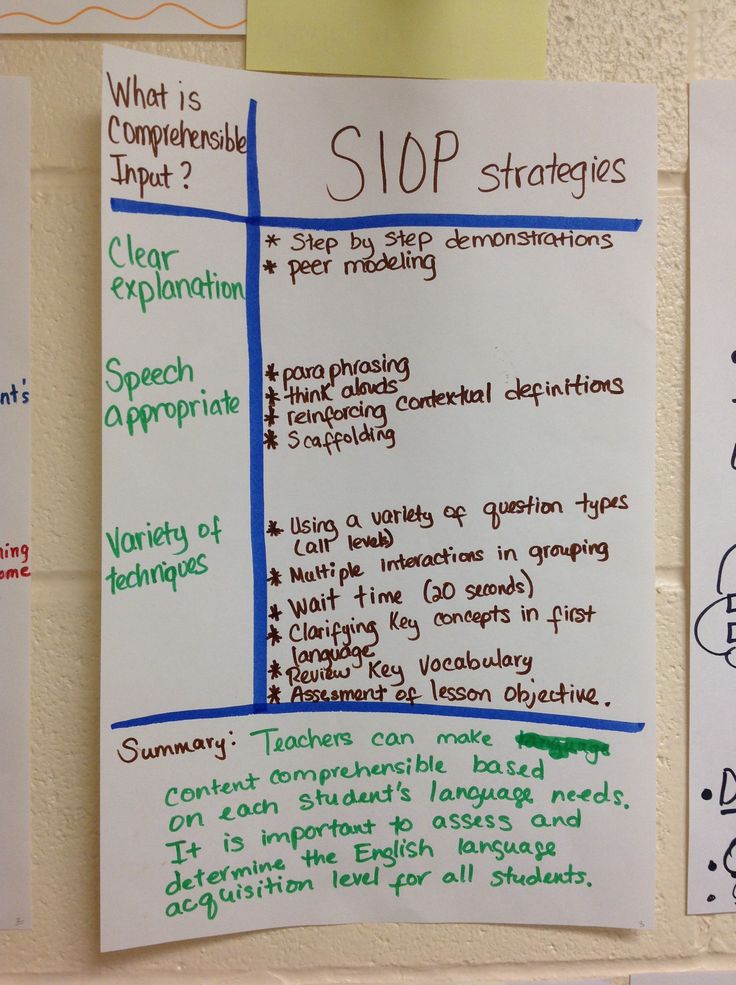 What is
Comprehensible
Input?
SIOP strategies
Clear
explanation
* Step by step demonstrations
* peer modeling
Speech
appropriate
* paraphrasing
* think alouds
* reinforcing contextual definitions
* Scaffolding
Variety of
techniques
* Using a variety of question types
(all levels)
* Multiple interactions in grouping
* Wait time (20 seconds)
* Clarifying Key concepts in first
language
* Review Key Vocabulary
* Assesment of lesson objective.
Summary: Teachers can make
content comprehensible based
on each student's language needs.
It is important to assess and
determine the English language
acquisition level for all students.
nt's
ning
ome